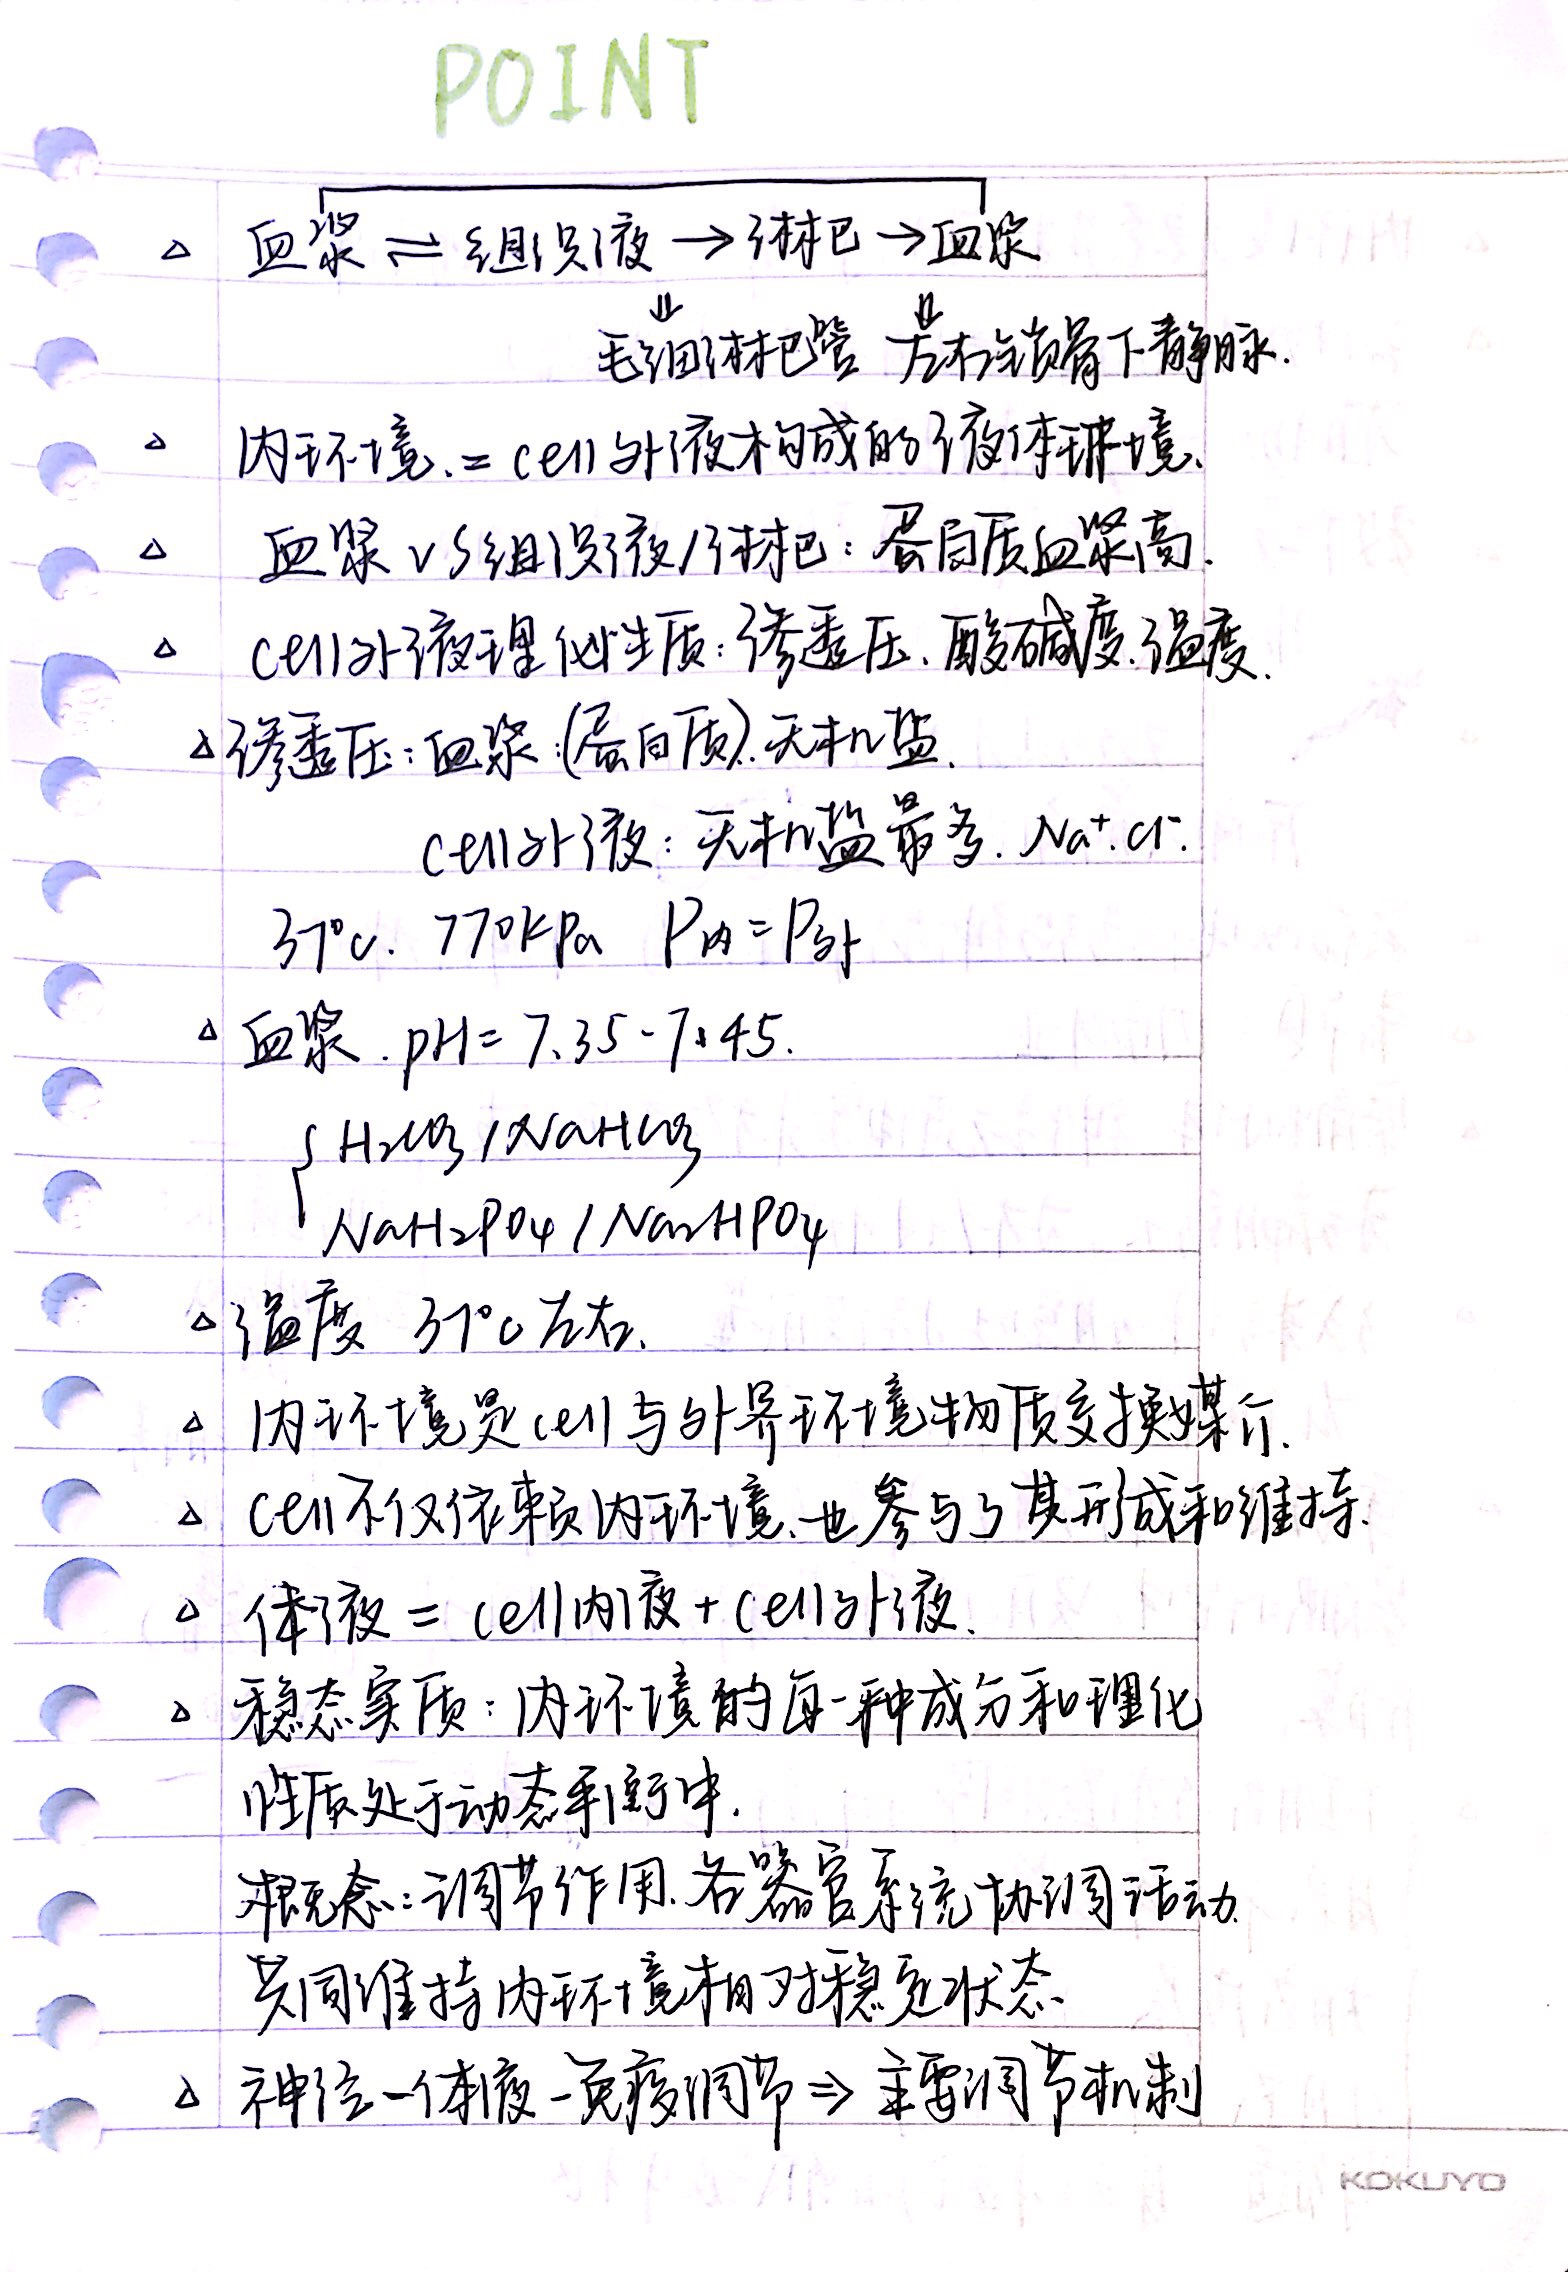 POINT
△ 血浆 ⇌ 组织液 → 淋巴 → 血浆
⇓ ⇓
毛细淋巴管 左右锁骨下静脉.
△ 内环境.=cell外液构成的液体环境.
△ 血浆 VS 组织液/淋巴:蛋白质血浆高.
△ cell外液理化性质:渗透压、酸碱度、温度.
△ 渗透压:血浆:(蛋白质).无机盐.
cell外液:无机盐最多. Na⁺.Cl⁻.
37℃. 770kPa P内=P外
△ 血浆.pH=7.35-7.45.
{ H₂CO₃/NaHCO₃
NaH₂PO₄/Na₂HPO₄
△ 温度 37℃左右.
△ 内环境是cell与外界环境物质交换媒介.
△ cell不仅依赖内环境、也参与了其形成和维持.
△ 体液=cell内液+cell外液.
△ 稳态实质:内环境的每一种成分和理化
性质处于动态平衡中.
概念:调节作用.各器官系统协调活动.
共同维持内环境相对稳定状态.
△ 神经-体液-免疫调节⇒主要调节机制
KOKUYO